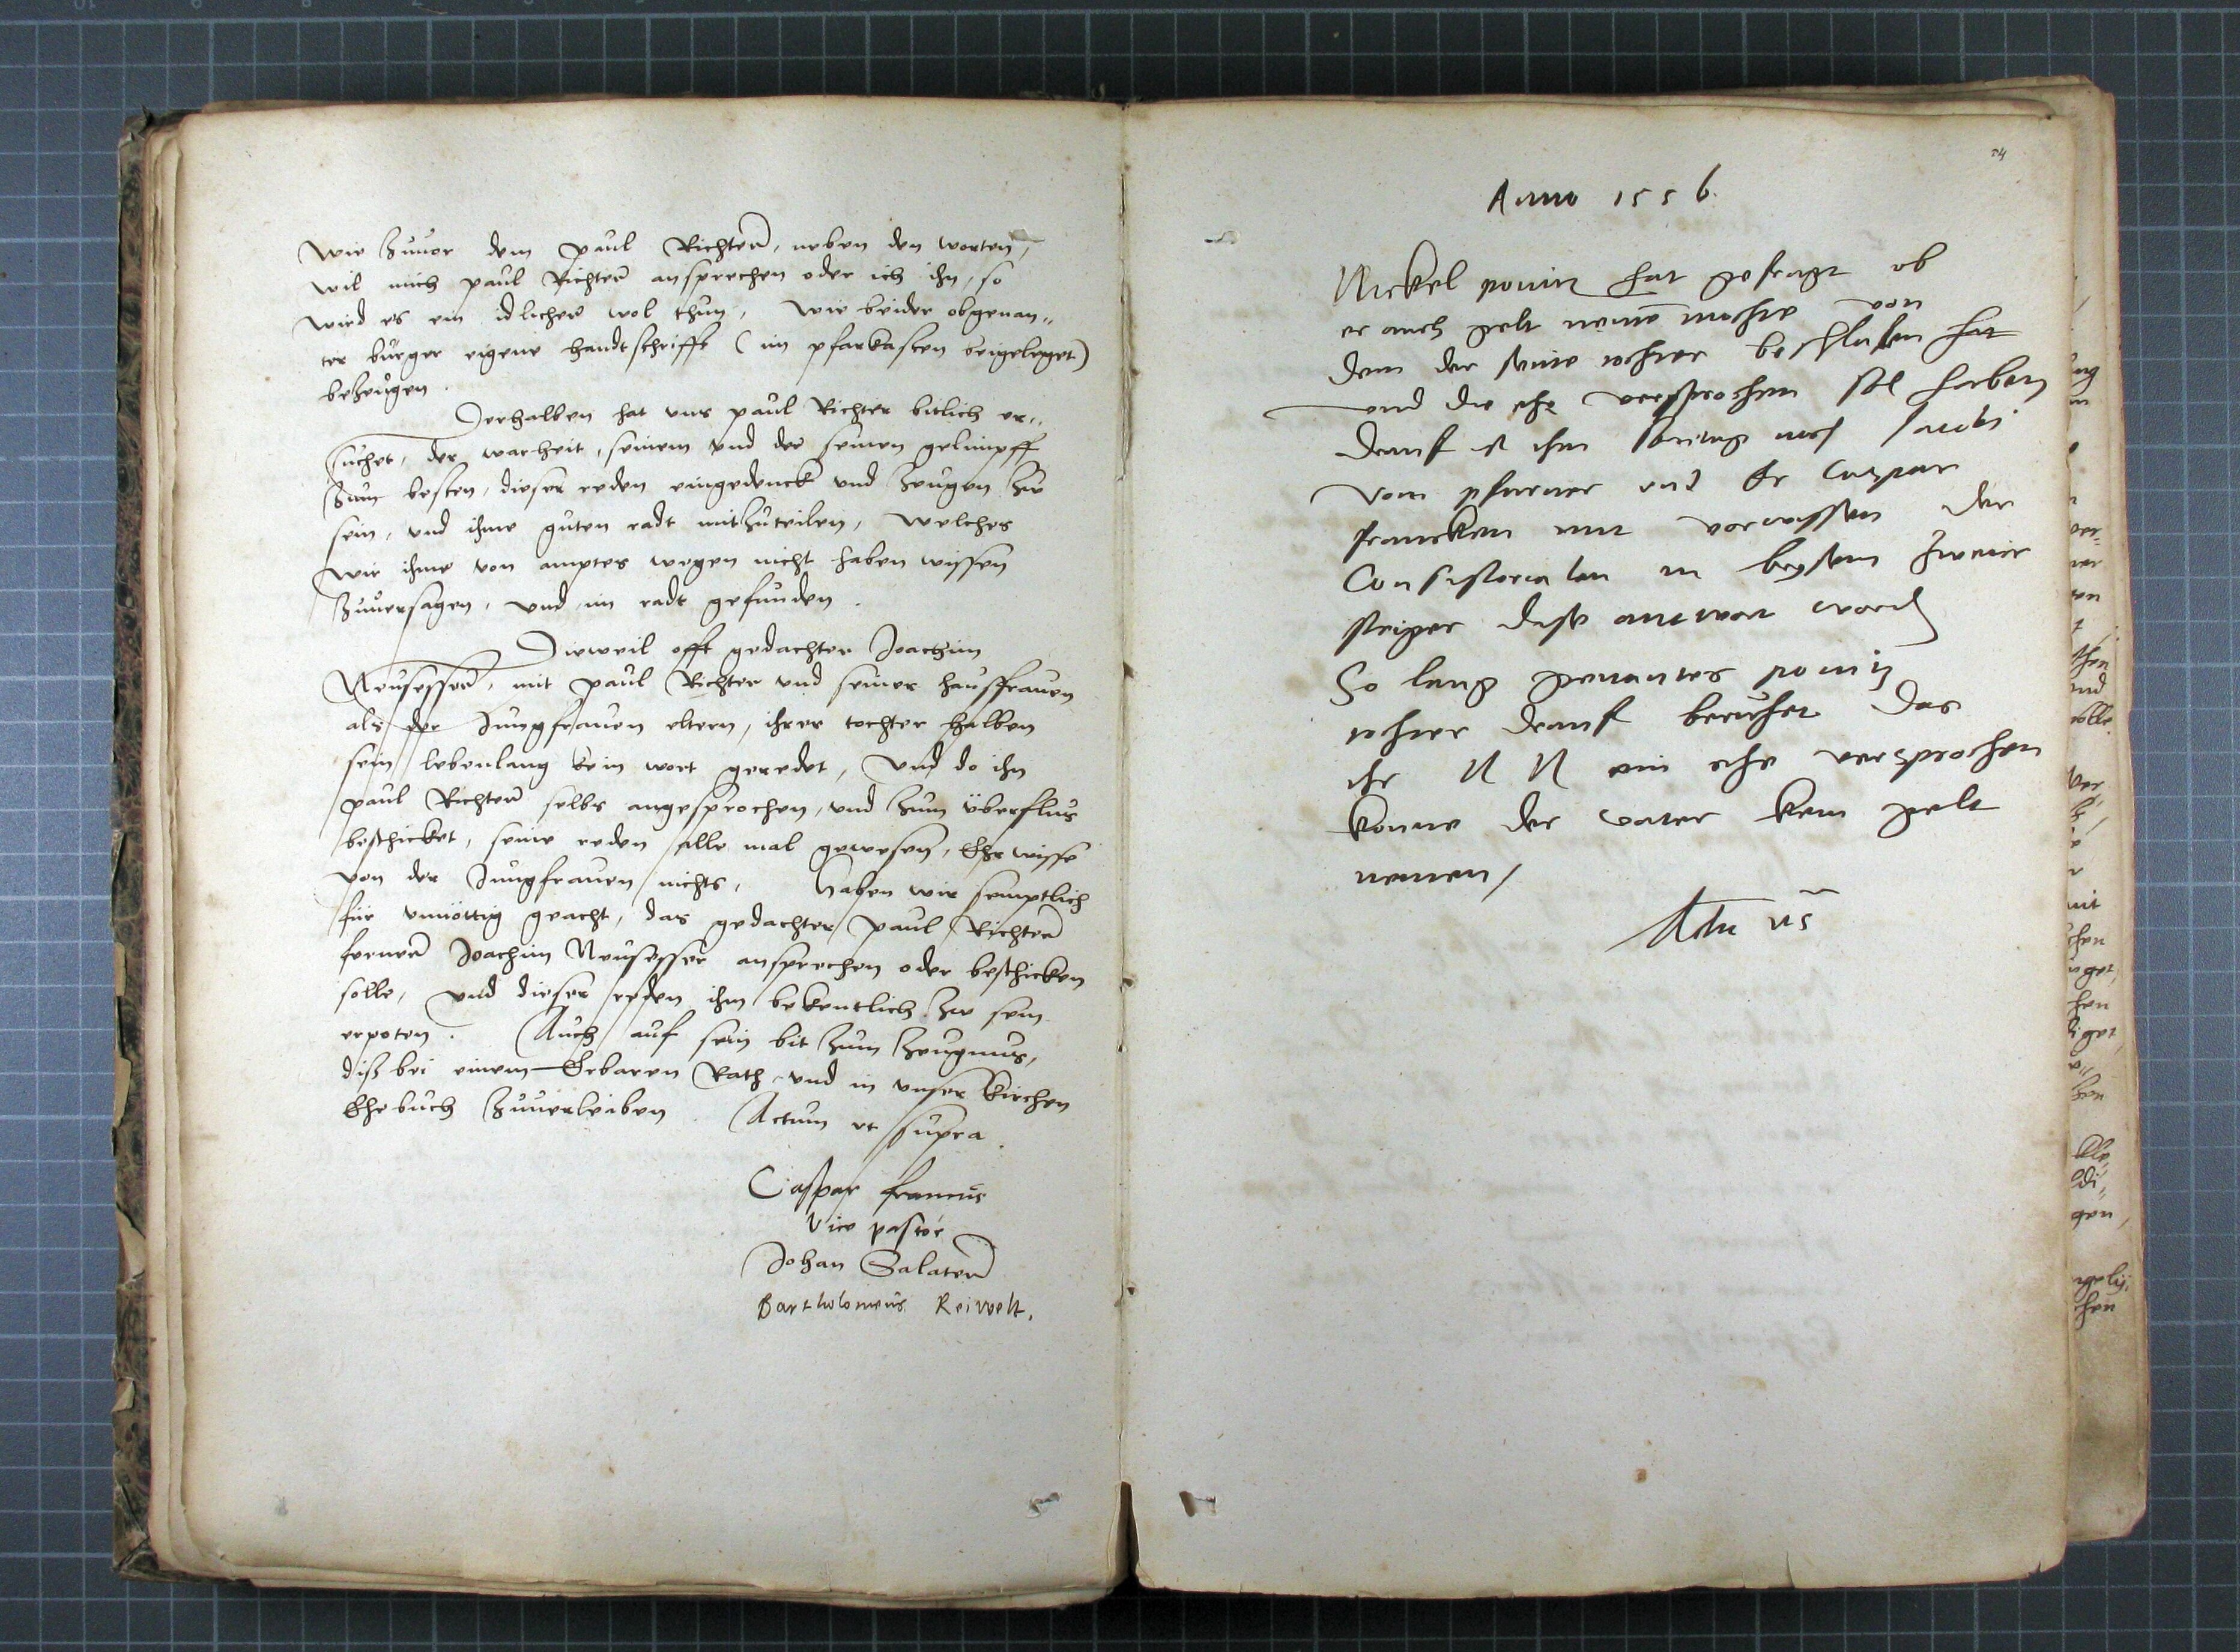 wie zuuor dem Paul Richtern, neben den worten,
wil mich Paul Richter ansprechen oder ich ihn, so
wird es ein idlicher wol thun, wie beider obgenan„
ter burger eigene handtschrifft (im pfarkasten beigeleget)
bezeugen.
Derhalben hat uns Paul Richter bitlich er„
suchet, der warheit, seinem und der seinen gelimpff
zum besten, dieser reden eingedenck und zeugen zu
sein, und ihme guten radt mitzuteilen, welches
wir ihme von amptes wegen nicht haben wissen
zuuersagen, und im radt gefunden.
Dieweil offt gedachter Joachim
Neusesser, mit Paul Richter und seiner hausfrauen
als der Jungfrauen eltern, ihrer tochter halben
sein lebenlang kein wort geredet, und do ihn
Paul Richter selbs angesprochen, und zum überflus
beschicket, seine reden alle mal gewesen, Ehr wisse
von der Jungfrauen nichts, Haben wir semptlich
für unnöttig geacht, das gedachter Paul Richter
ferner Joachim Neusesser ansprechen oder beschicken
solle, und dieser reden ihm bekentlich zu sein
erpoten. Auch auf sein bit zum zeugnus,
diß bei einem Erbaren Rath, und in unser kirchen
Ehebuch zuuerleiben. Actum ut supra.
Caspar francus
Vice pastor
Johan Salater
Bartholomeus Reiwelt.
24
Anno 1556.
Nickel hat gefragt ob
er auch gelt nemen mochte von
dem der seine tochter beschlafen hat
und die ehe versprochen sol haben
drauf ist ihm freitag nach Jacobi
vom pfarrer und Er Caspar
francken mit vorwissen der
Consistorialen in beysein zweier
steiger diese antwort worden
So lang genantes
tochter drauf beruhet das
ihr N N ein ehe versprochen
konne der vater kein gelt
nemen/
Actu us